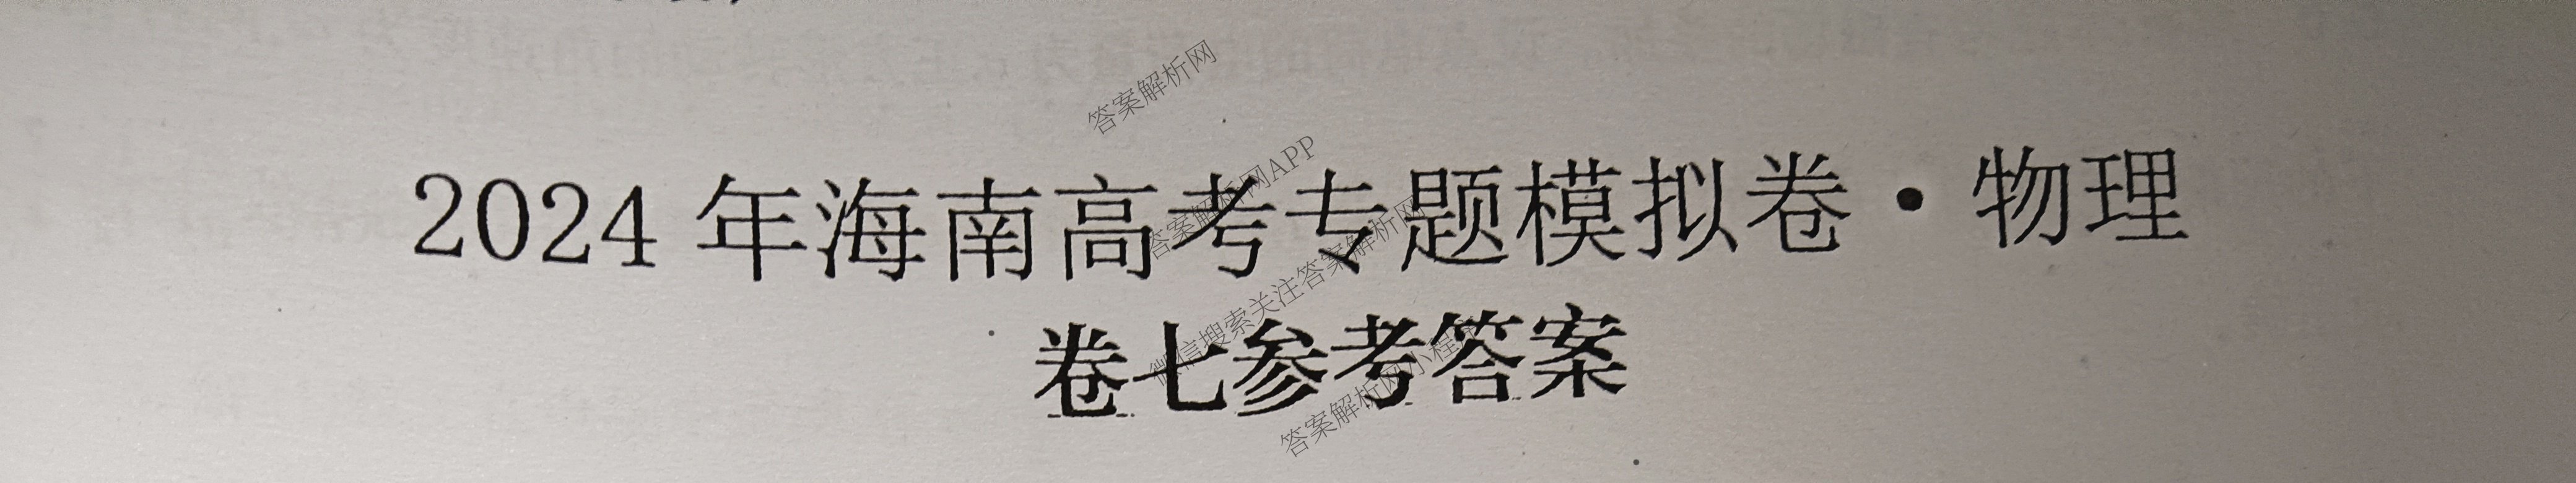 答案解析网
答案解析网APP
2024年海南高考专题模拟卷·物理
微信搜索关注答案解析网
卷七参考答案
答案解析网小程序